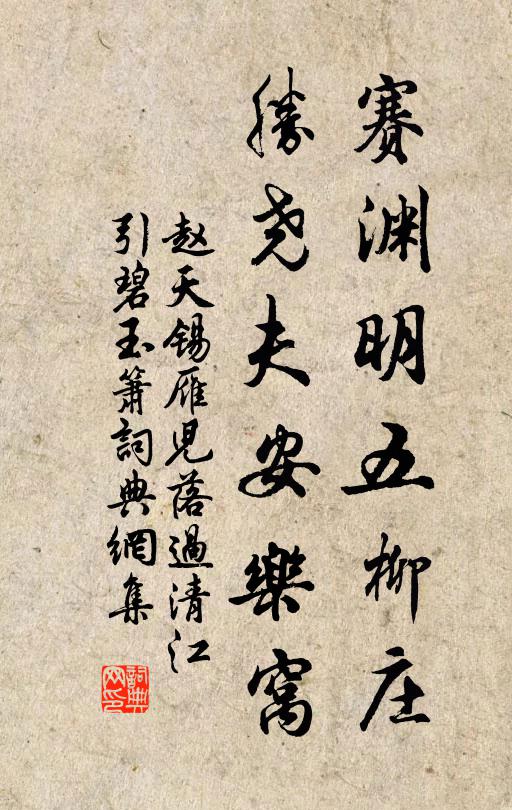 赛渊明五柳庄
勝尧夫安樂窝
赵天锡雁児落過清江
引碧玉箫詞典網集
詞典网印